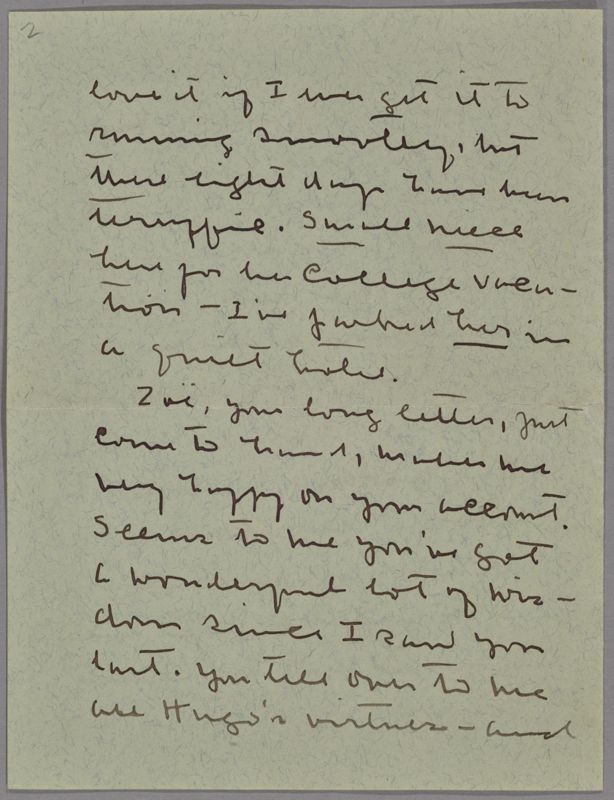 2
love it if I ever get it to
running smoothly, but
these eight days have been
terrific. Small niece
here for her College vaca-
tion – I've parked her in
a quiet hotel.
Zoë, your long letter, just
come to hand, makes me
very happy on your account.
Seems to me you've got
a wonderful lot of wis-
dom since I saw you
last. You tell over to me
all Hugo's virtues – and